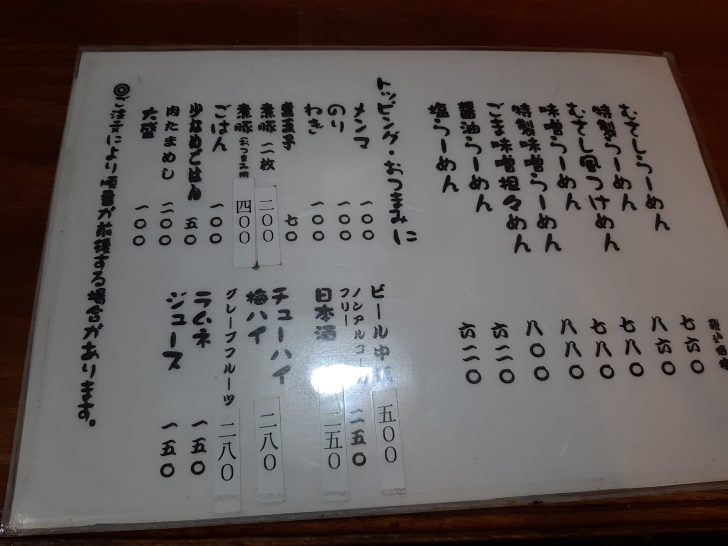 むさしらーめん 七六〇
特製らーめん 八六〇
むさし風つけめん 七八〇
味噌らーめん 七八〇
特製味噌らーめん 八八〇
ごま味噌担々めん 八〇〇
醤油らーめん 六二〇
塩らーめん 六二〇
トッピング・おつまみに
メンマ 一〇〇
のり 一〇〇
ねぎ 一〇〇
煮玉子 七〇
煮豚 二枚 二〇〇
煮豚(おつまみ用) 四〇〇
ごはん 一〇〇
少なめごはん 五〇
肉たまめし 二〇〇
大盛 一〇〇
ビール中 五〇〇
ノンアルコール
フリー 二五〇
日本酒 二五〇
チューハイ
梅ハイ 二八〇
グレープフルーツ 二八〇
ラムネ 一五〇
ジュース 一五〇
◎ご注文により順番が前後する場合があります。